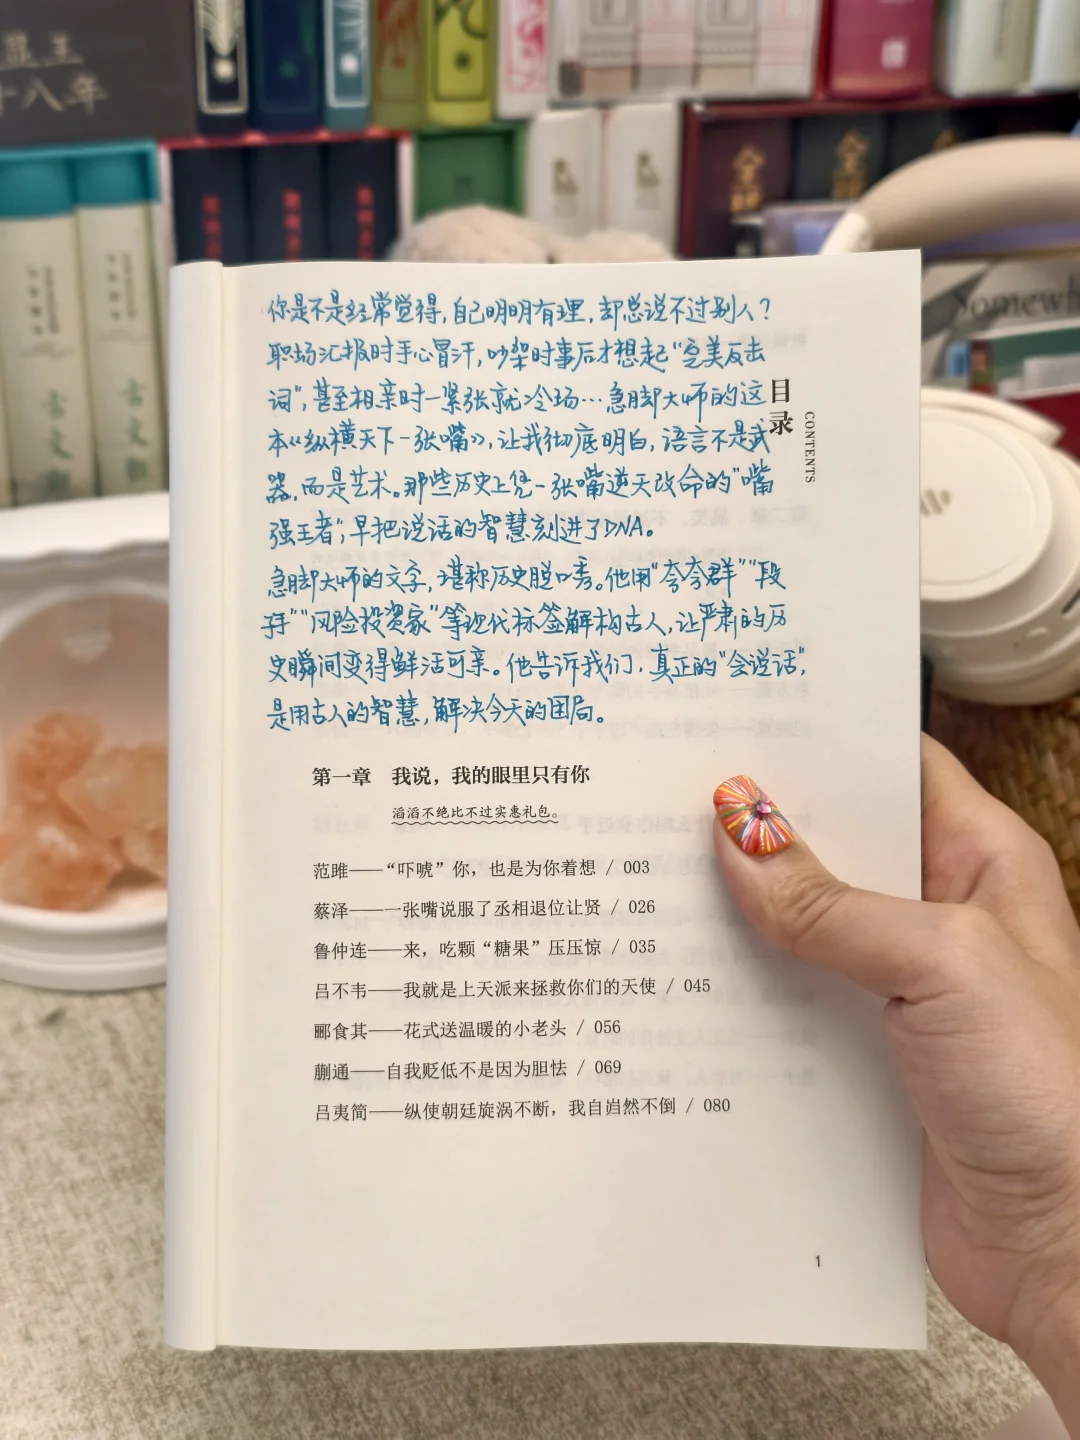 你是不是经常觉得,自己明明有理,却总说不过别人?
职场汇报时手心冒汗,吵架时事后才想起"完美反击
词",甚至相亲时一紧张就冷场…急脚大师的这
本《纵横天下一张嘴》,让我彻底明白,语言不是武
器,而是艺术。那些历史上凭一张嘴逆天改命的"嘴
强王者",早把说话的智慧刻进了DNA。
急脚大师的文字,堪称历史脱口秀。他用"夸夸群""段
手""风险投资家"等现代标签解构古人,让严肃的历
史瞬间变得鲜活可亲。他告诉我们,真正的"会说话",
是用古人的智慧,解决今天的困局。
目录
CONTENTS
第一章 我说,我的眼里只有你
滔滔不绝比不过实惠礼包。
范雎——“吓唬”你,也是为你着想 / 003
蔡泽——一张嘴说服了丞相退位让贤 / 026
鲁仲连——来,吃颗“糖果”压压惊 / 035
吕不韦——我就是上天派来拯救你们的天使 / 045
郦食其——花式送温暖的小老头 / 056
蒯通——自我贬低不是因为胆怯 / 069
吕夷简——纵使朝廷旋涡不断,我自岿然不倒 / 080
1
十八年
古文
古文
Somewh